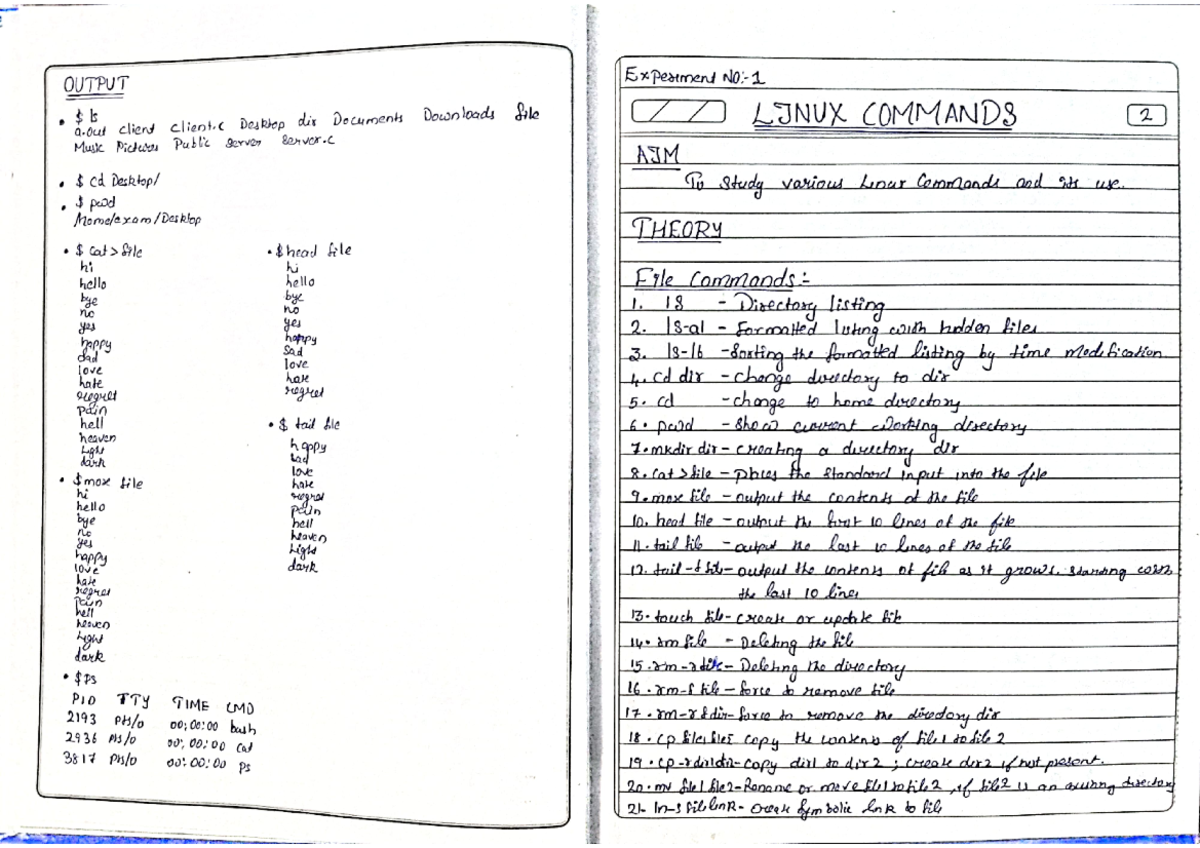 OUTPUT
• $ ls
a.out client client.c Desktop dir Documents Downloads file
Music Pictures Public Server Server.c
• $ cd Desktop/
• $ pwd
/home/exam/Desktop
• $ cat > file
hi
hello
bye
no
yes
happy
dad
love
hate
regret
pain
hell
heaven
light
dark
• $ more file
hi
hello
bye
no
yes
happy
love
hate
regret
Pain
hell
heaven
light
dark
• $ ps
PID TTY TIME CMD
2193 pts/0 00:00:00 bash
2936 pts/0 00:00:00 cat
3817 pts/0 00:00:00 ps
• $ head file
hi
hello
bye
no
yes
happy
sad
love
hate
regret
• $ tail file
happy
sad
love
hate
regret
pain
hell
heaven
light
dark
Experiment NO:-1
LINUX COMMANDS
2
AIM
To study various Linux Commands and its use.
THEORY
File Commands:-
1. ls - Directory listing
2. ls-al - Formatted listing with hidden files
3. ls-lt - Sorting the formatted listing by time modification
4. cd dir - change directory to dir
5. cd - change to home directory
6. pwd - Show current working directory
7. mkdir dir - creating a directory dir
8. cat > file - places the standard input into the file
9. more file - output the contents of the file
10. head file - output the first 10 lines of the file
11. tail file - output the last 10 lines of the file
12. tail -f file - output the contents of file as it grows, starting with
the last 10 lines
13. touch file - create or update file
14. rm file - Deleting the file
15. rm -r dir - Deleting the directory
16. rm -f file - force to remove file
17. rm -rf dir - force to remove the directory dir
18. cp file1 file2 copy the contents of file 1 to file 2
19. cp -r dir1 dir2 - copy dir1 to dir 2 ; create dir 2 if not present.
20. mv file1 file2 - Rename or move file1 to file 2, if file2 is an existing directory
21. ln -s file link - create symbolic link to file